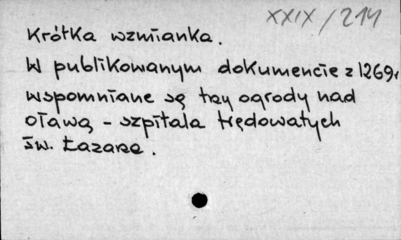 XXIX/214
Krótka wzmianka.
W publikowanym dokumencie z 1269r
wspomniane są trzy ogrody nad
Oławą - szpitala trędowatych
św. Łazarza.